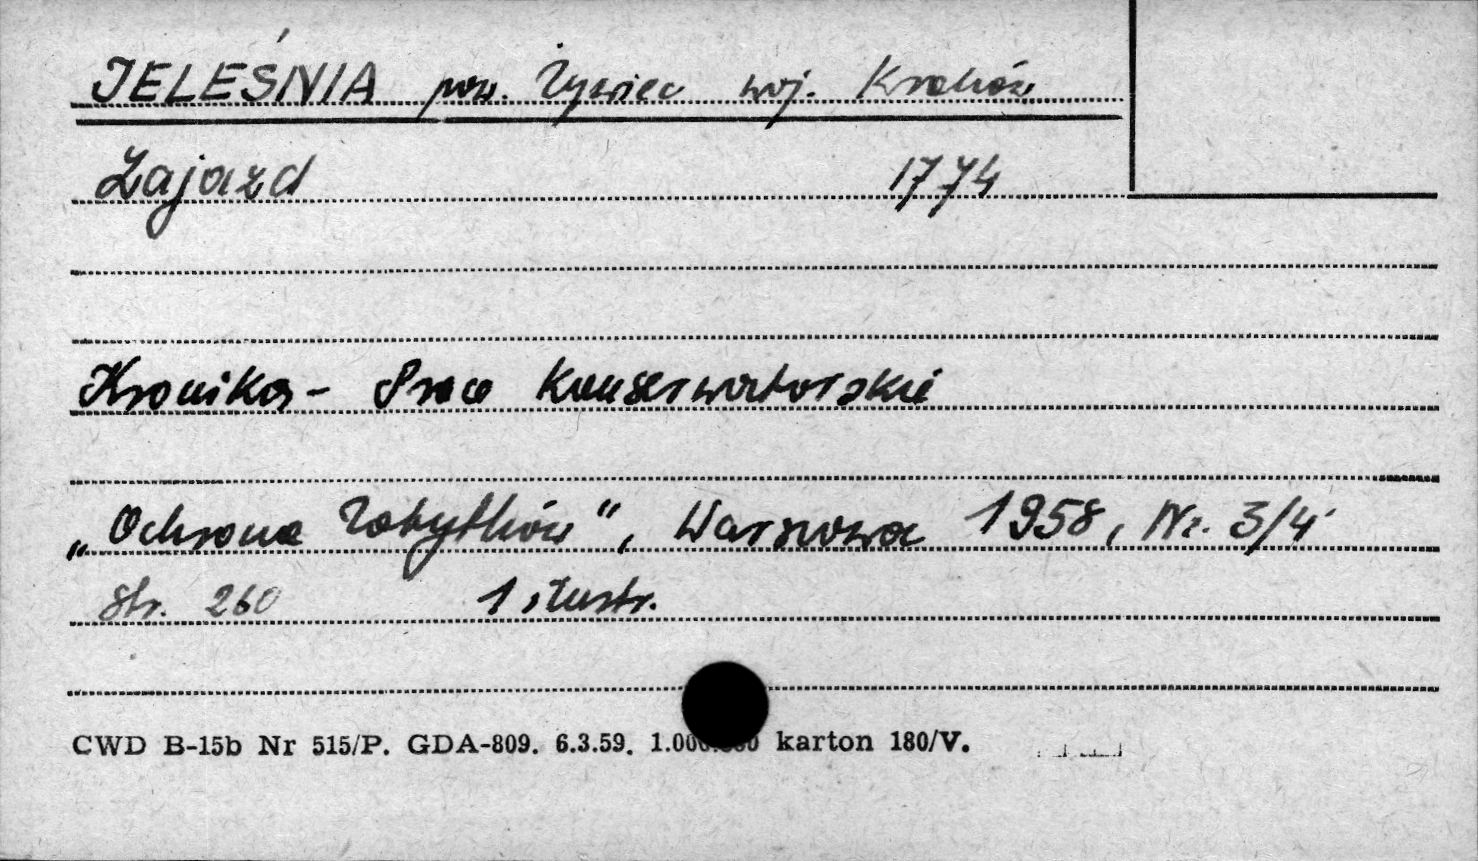 JELEŚNIA pow. Żywiec woj. Kraków
Zajazd 1774
Kronika - Prace Konserwatorskie
„Ochrona Zabytków", Warszawa 1958, Nr. 3/4
str. 260 1 ilustr.
CWD B-15b Nr 515/P. GDA-809. 6.3.59. karton 180/V.